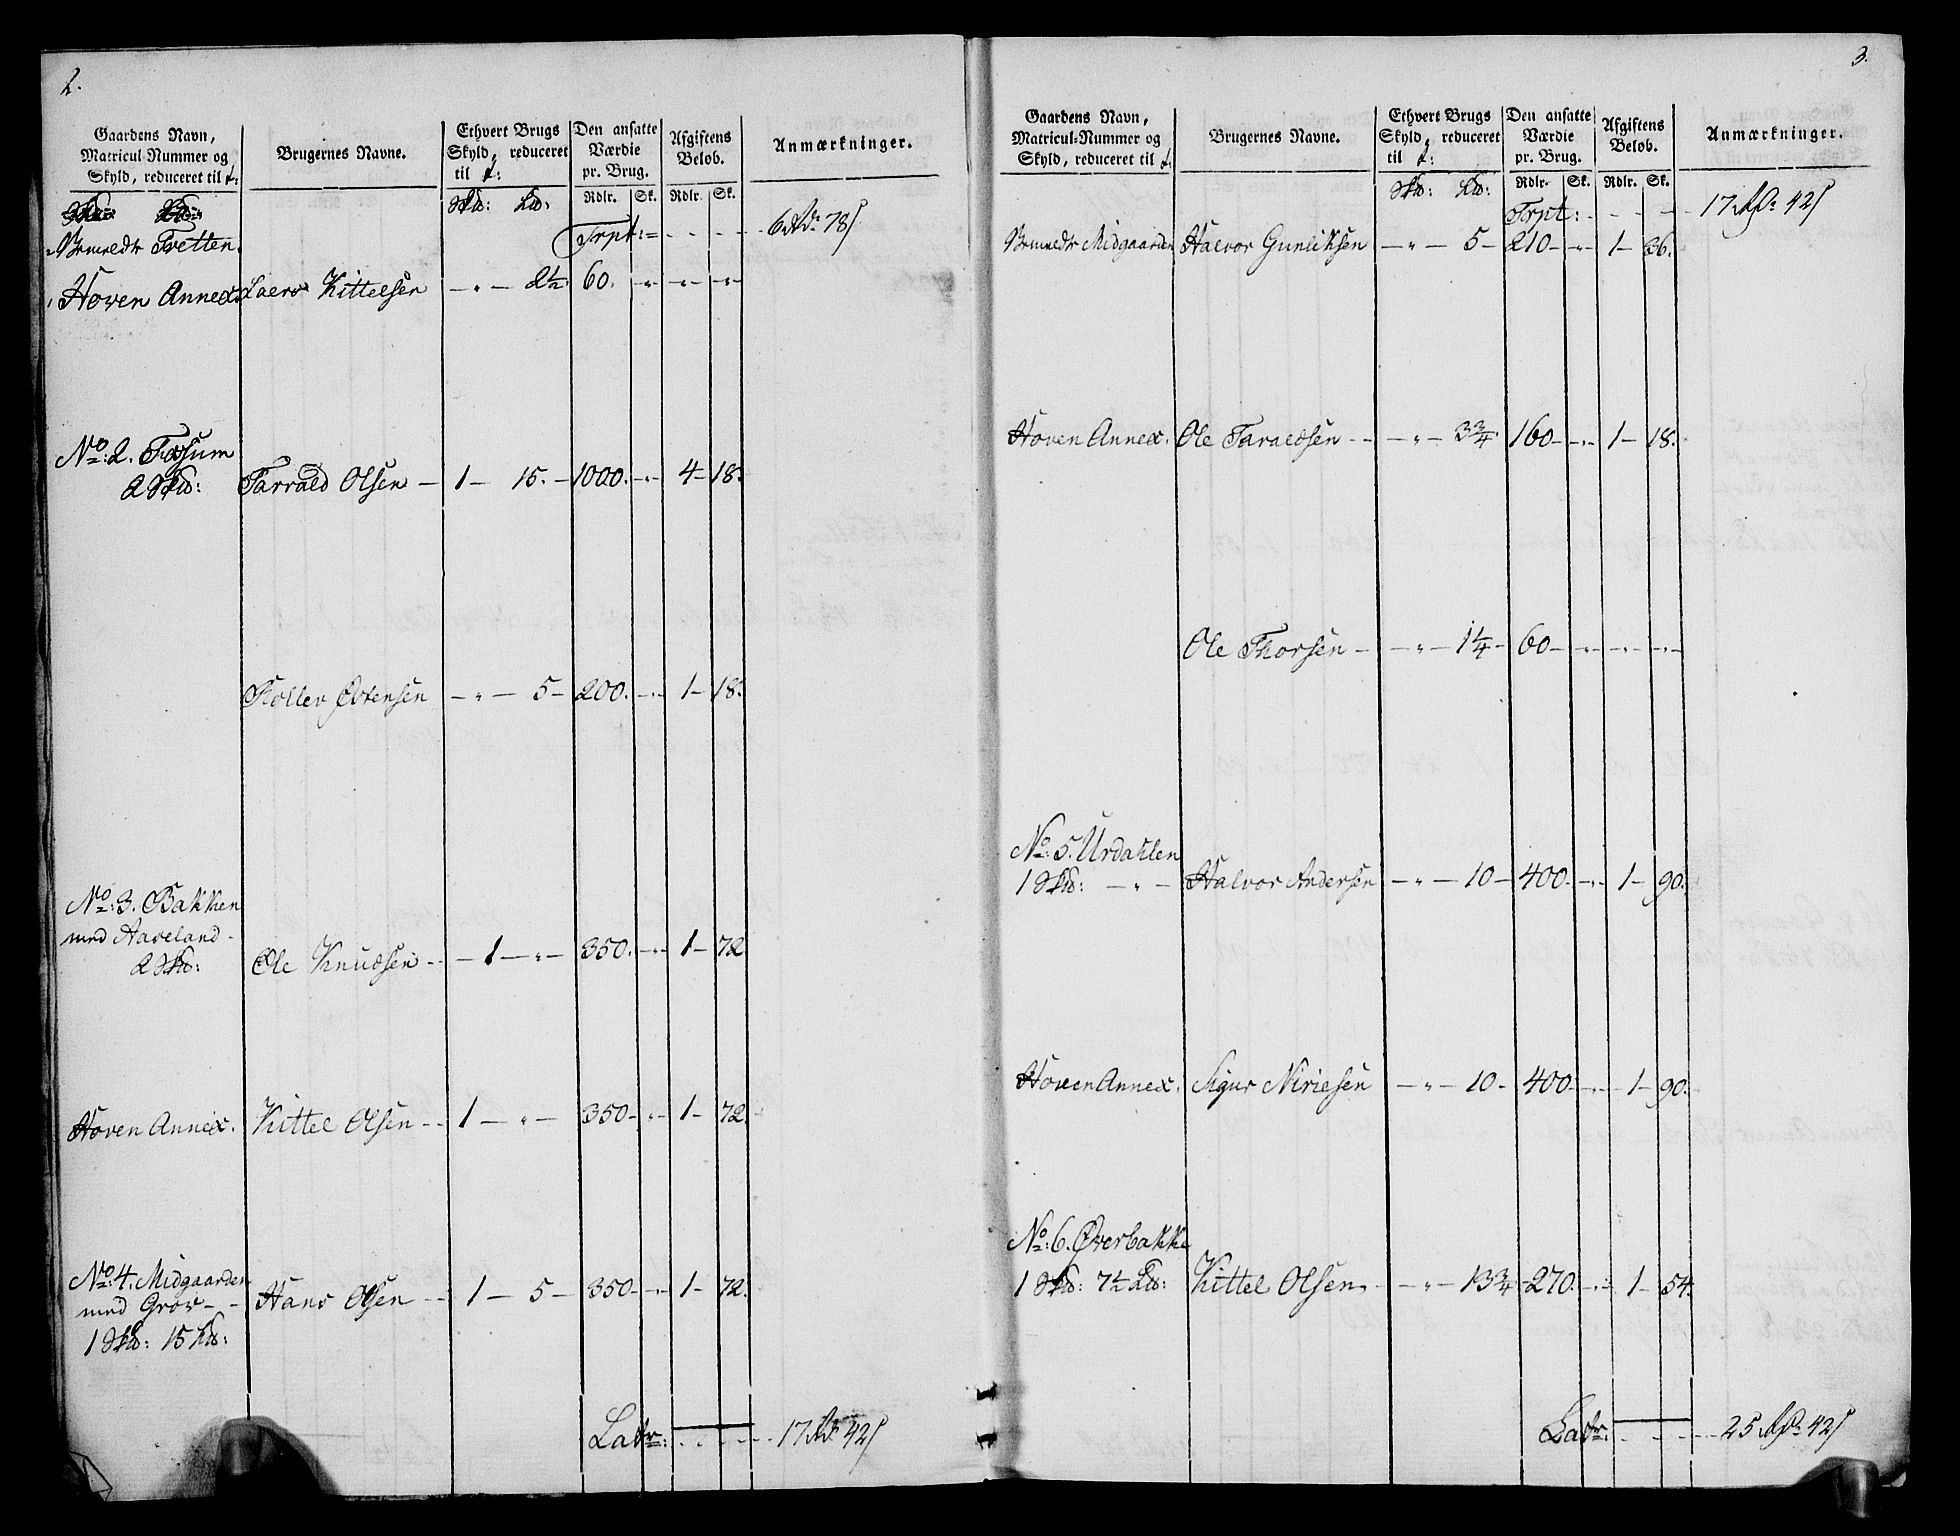 2.
Gaardens Navn,
Matricul-Nummer og
Skyld, reduceret til t:
Brugernes Navne.
Ethvert Brugs
Skyld, reduceret
til t:
Den ansatte
Værdie
pr. Brug.
Afgiftens
Beløb.
Anmærkninger.
Rdlr. Sk. Rdlr. Sk.
Trpt: 6 Rd 78 s
Tretten.
Hoven Annex. Laers Kittelsen - " - 2½ 60. - " - " - " -
No: 2. Fossum
2 Skd: Tarrald Olsen - 1 - 15. - 1000. - " - 4 - 18.
Tollev Østensen - " - 5 - 200. - " - 1 - 18.
No: 3. Bakken
med Aaseland -
2 Skd: Ole Knudsen - - 1 - " - 350. - " - 1 - 72
Hoven Annex. Kittel Olsen - - 1 - " - 350 - " - 1 - 72.
No: 4. Midgaarden
med Grov - -
Hans Olsen - - 1 - 5 - 350 - " - 1 - 72.
1 Skd: 15 Ld:
Latr: 17 Rd 42 s
3.
Gaardens Navn,
Matricul-Nummer og
Skyld, reduceret til t:
Brugernes Navne.
Ethvert Brugs
Skyld, reduceret
til t:
Den ansatte
Værdie
pr. Brug.
Afgiftens
Beløb.
Anmærkninger.
Skd: Ld: Rdlr. Sk. Rdlr. Sk.
Trpt: - - - - 17 Rd 42 s
Midgaarden Halvor Gunliksen - " - 5 - 210 - " - 1 - 36.
Hoven Annex. Ole Taraldsen - - " - 3¾ 160 - " - 1 - 18.
Ole Thorsen - - " - 1¼ - 60 - " - " - " -
No: 5. Urdahlen
1 Skd: - " - Halvor Andersen - " - 10 - 400 - " - 1 - 90.
Hoven Annex. Sigur Niriesen - " - 10 - 400 - " - 1 - 90.
No: 6. Øverbakke
1 Skd: 7½ Ld: Kittel Olsen - - " - 13¾ 270. - " - 1 - 54.
Latr: - - - - 25 Rd 42 s